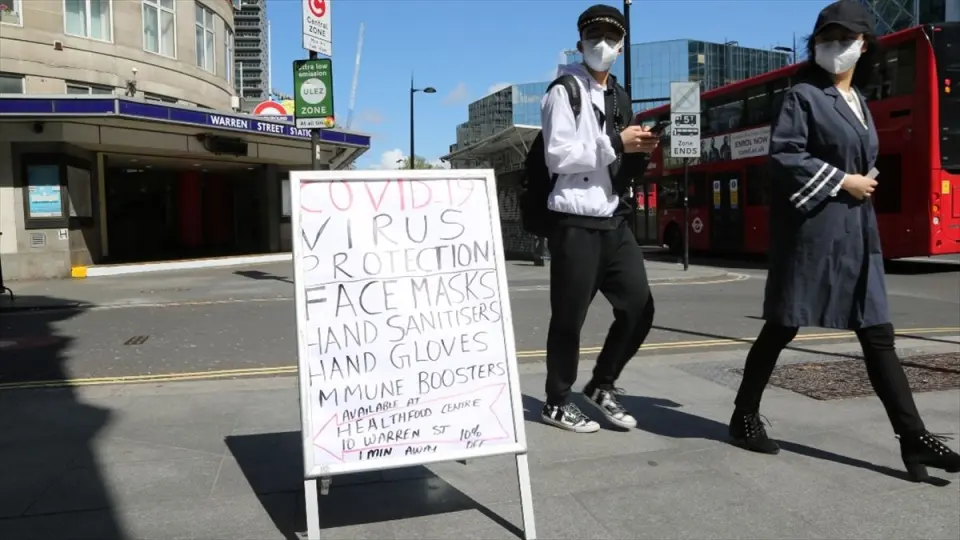 C
Central
ZONE
ultra low
emission
ULEZ
ZONE
At all times
WARREN STREET STATION
Zone
ENDS
ENROL NOW
COVID-19
VIRUS
PROTECTION
FACE MASKS
HAND SANITISERS
HAND GLOVES
MMUNE BOOSTERS
AVAILABLE AT
HEALTHFOOD CENTRE
10 WARREN ST 10%
1 MIN AWAY OFF